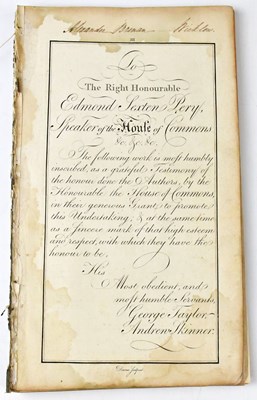 Alexander
To
The Right Honourable
Edmond Sexten Pery,
Speaker of the House of Commons
&c. &c. &c.
The following work is most humbly
inscribed, as a grateful Testimony of
the honour done the Authors, by the
Honourable the House of Commons,
in their generous Grant, to promote
this Undertaking, & at the same time
as a sincere mark of that high esteem
and respect, with which they have the
honour to be,
His
Most obedient, and
most humble Servants,
George Taylor.
Andrew Skinner.